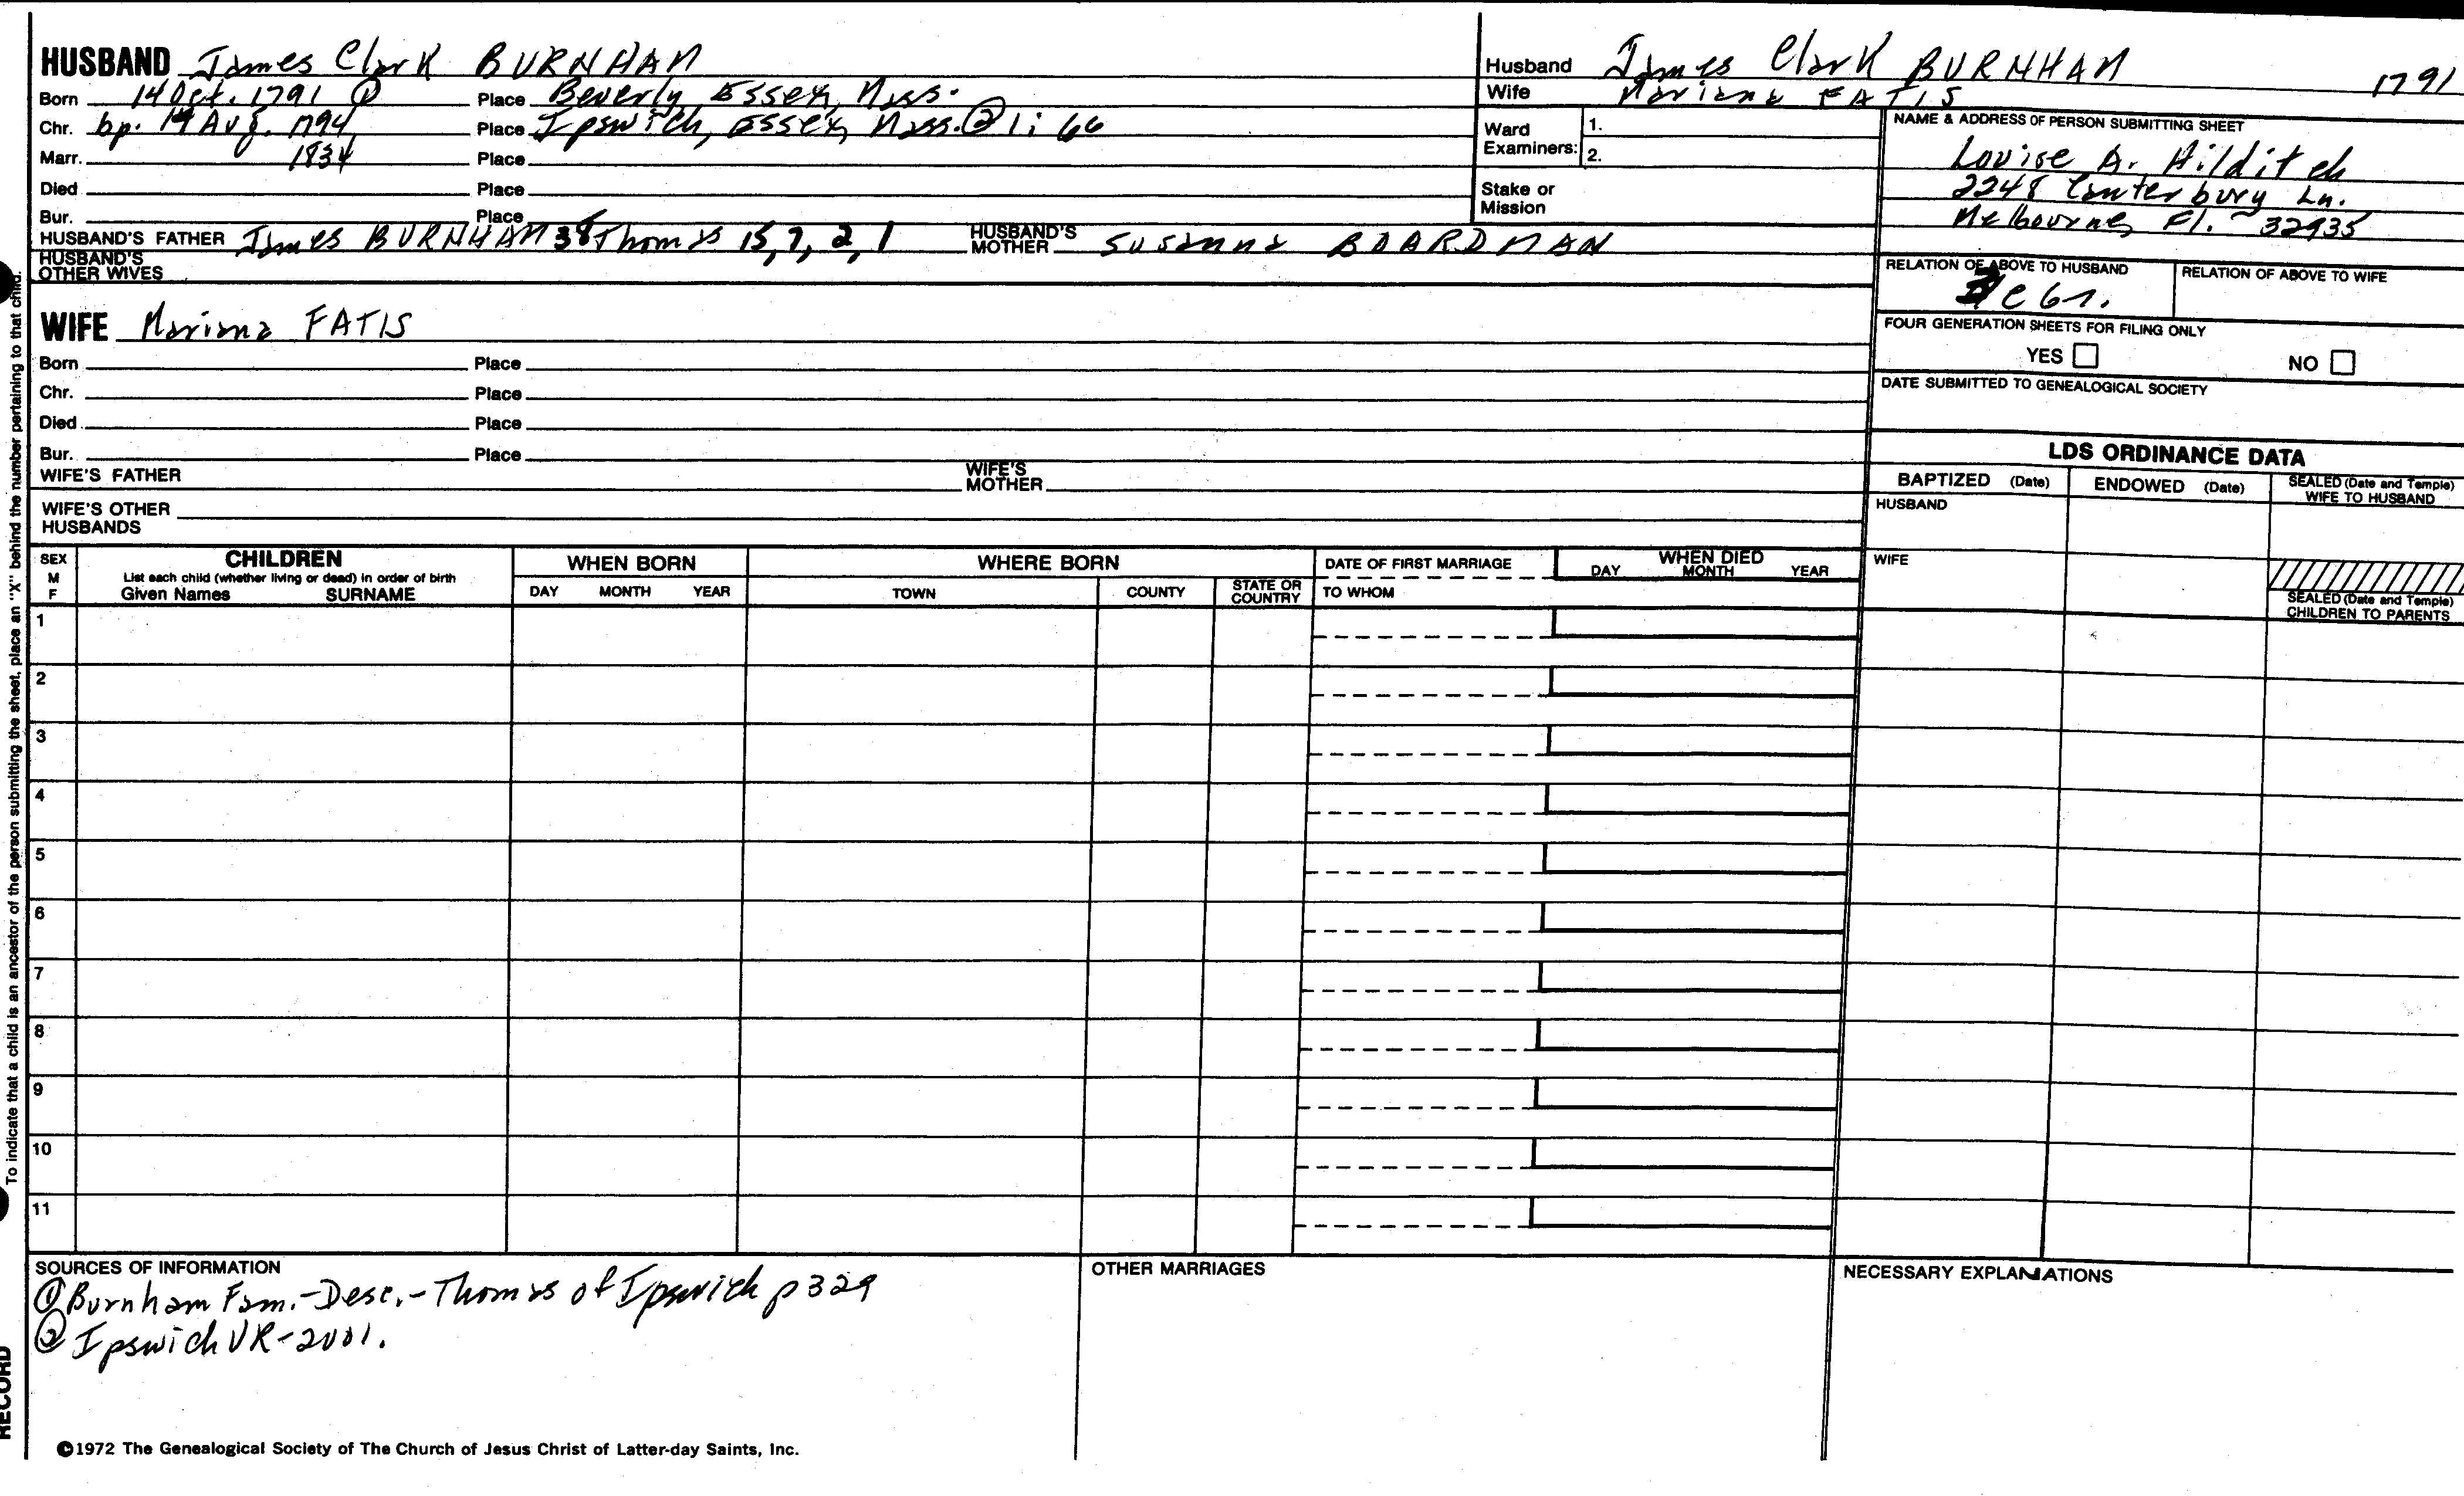 HUSBAND James Clark BURNHAM
Born 14 Oct. 1791 ① Place Beverly, Essex, Mass.
Chr. bp. 19 Aug. 1794 Place Ipswich, Essex, Mass. ② 1: 66
Marr. 1834 Place
Died Place
Bur. Place
HUSBAND'S FATHER James BURNHAM 38 Thomas 15, 7, 2, 1 HUSBAND'S MOTHER Susanna BOARDMAN
HUSBAND'S OTHER WIVES
WIFE Mariana FATIS
Born Place
Chr. Place
Died Place
Bur. Place
WIFE'S FATHER WIFE'S MOTHER
WIFE'S OTHER HUSBANDS
Husband James Clark BURNHAM 1791
Wife Mariana FATIS
Ward Examiners: 1.
2.
Stake or Mission
NAME & ADDRESS OF PERSON SUBMITTING SHEET
Louise A. Hilditch
2248 Canterbury Ln.
Melbourne, Fl. 32935
RELATION OF ABOVE TO HUSBAND RELATION OF ABOVE TO WIFE
FOUR GENERATION SHEETS FOR FILING ONLY
YES NO
DATE SUBMITTED TO GENEALOGICAL SOCIETY
LDS ORDINANCE DATA
BAPTIZED (Date) ENDOWED (Date) SEALED (Date and Temple) WIFE TO HUSBAND
HUSBAND
WIFE
SEALED (Date and Temple) CHILDREN TO PARENTS
SEX M F
CHILDREN
List each child (whether living or dead) in order of birth
Given Names SURNAME
WHEN BORN
DAY MONTH YEAR
WHERE BORN
TOWN COUNTY STATE OR COUNTRY
DATE OF FIRST MARRIAGE
TO WHOM
WHEN DIED
DAY MONTH YEAR
1
2
3
4
5
6
7
8
9
10
11
SOURCES OF INFORMATION
① Burnham Fam.-Desc.-Thomas of Ipswich p 329
② Ipswich VR-2001.
OTHER MARRIAGES
NECESSARY EXPLANATIONS
©1972 The Genealogical Society of The Church of Jesus Christ of Latter-day Saints, Inc.
To indicate that a child is an ancestor of the person submitting the sheet, place an "X" behind the number pertaining to that child.
RECORD